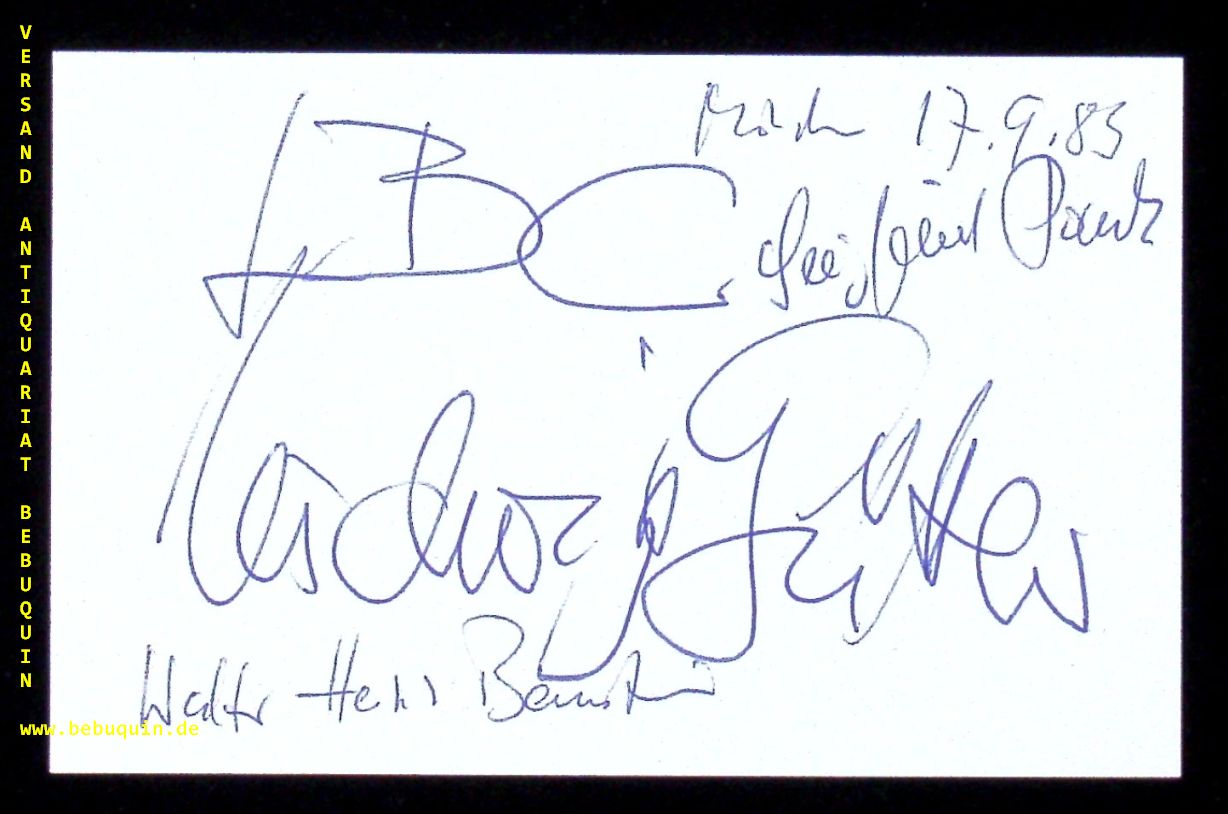 VERSAND ANTIQUARIAT BEBUQUIN
München 17.9.83
LBC
Siegfried Pank
Ludwig Güttler
Walter Heinz Bernstein
www.bebuquin.de